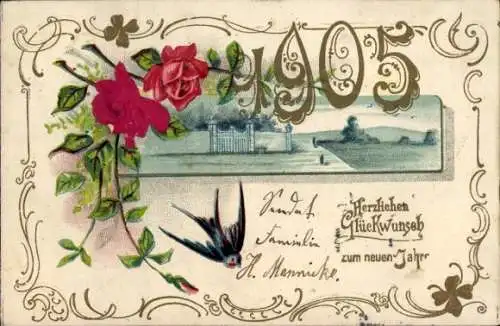 1905
Herzlichen
Glückwunsch
zum neuen Jahr
Sendet
Familie
H. Mennicke.